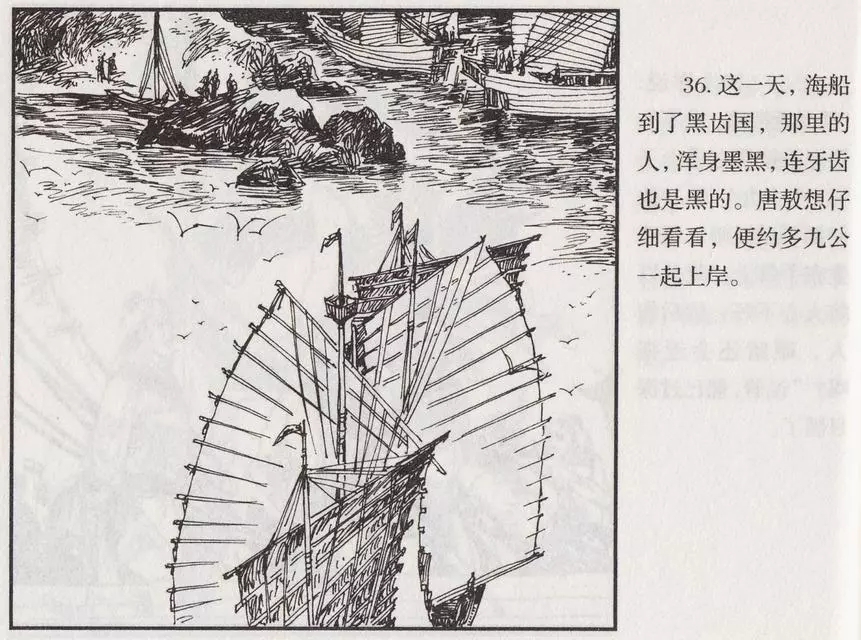 36. 这一天，海船
到了黑齿国，那里的
人，浑身墨黑，连牙齿
也是黑的。唐敖想仔
细看看，便约多九公
一起上岸。